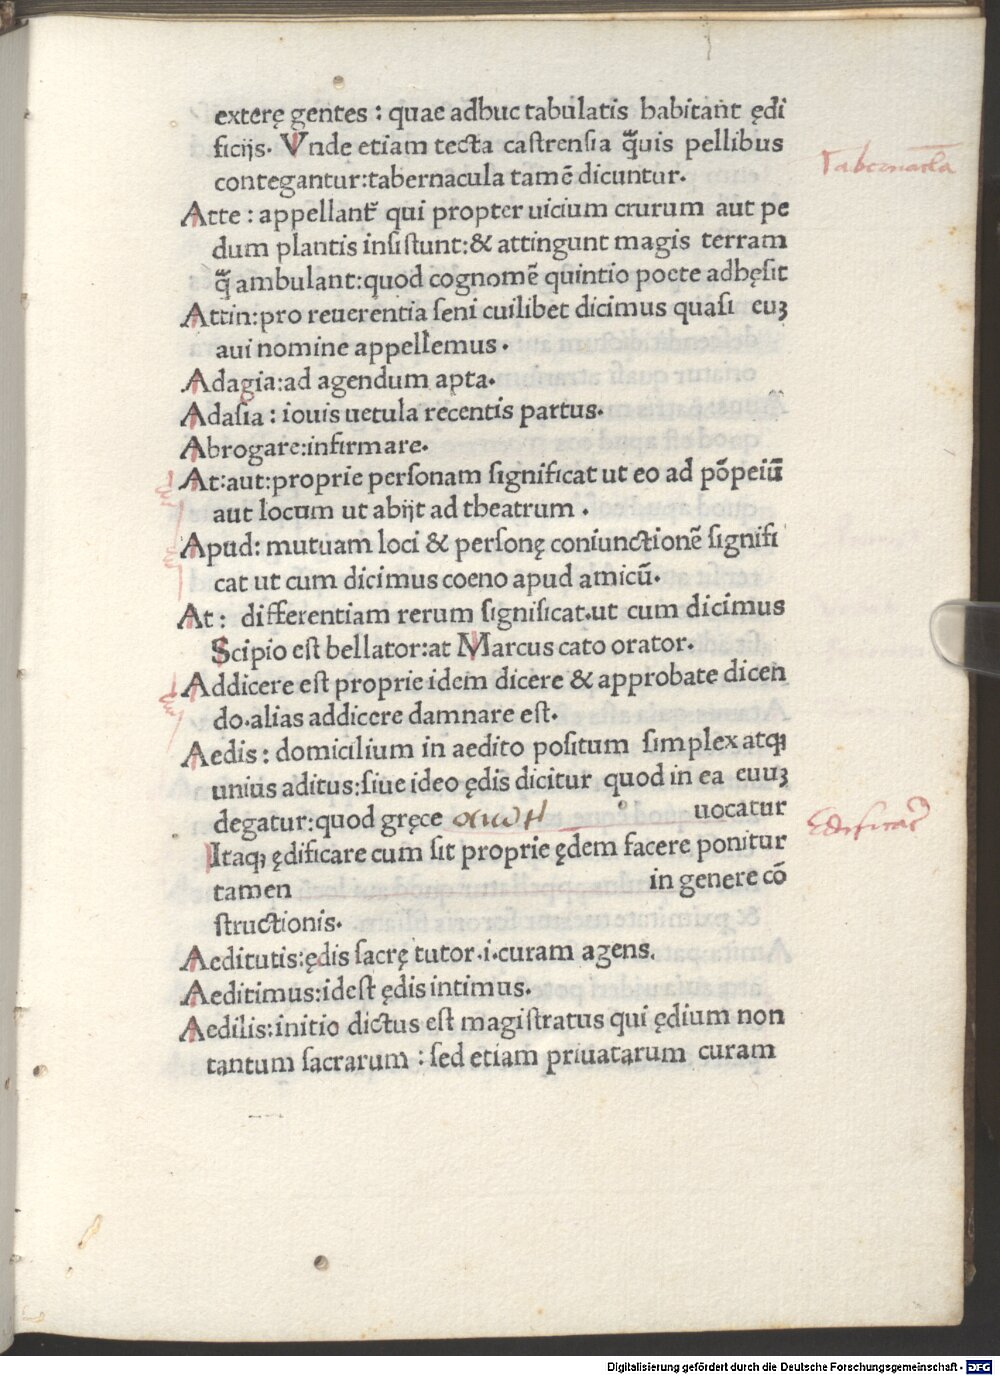 exterę gentes : quae adhuc tabulatis habitant ędi
ficijs. Vnde etiam tecta castrensia q̃uis pellibus
contegantur:tabernacula tamē dicuntur.
Tabernacła
Atte : appellant᷑ qui propter uicium crurum aut pe
dum plantis insistunt:& attingunt magis terram
q̃ ambulant:quod cognomē quintio poete adhęsit
Attin:pro reuerentia seni cuilibet dicimus quasi euꝫ
aui nomine appellemus.
Adagia:ad agendum apta.
Adasia : iouis uetula recentis partus.
Abrogare:infirmare.
At:aut:proprie personam significat ut eo ad pōpeiū
aut locum ut abijt ad theatrum .
Apud: mutuam loci & personę coniunctionē signifi
cat ut cum dicimus coeno apud amicū.
At : differentiam rerum significat.ut cum dicimus
Scipio est bellator:at Marcus cato orator.
Addicere est proprie idem dicere & approbate dicen
do.alias addicere damnare est.
Aedis : domicilium in aedito positum simplex atqꝫ
unius aditus:siue ideo ędis dicitur quod in ea euuꝫ
degatur:quod gręce αιωΗ uocatur
Itaqꝫ ędificare cum sit proprie ędem facere ponitur
tamen in genere cō
structionis.
Aeditutis:ędis sacrę tutor.i.curam agens.
Aeditimus:idest ędis intimus.
Aedilis:initio dictus est magistratus qui ędium non
tantum sacrarum : sed etiam priuatarum curam
Digitalisierung gefördert durch die Deutsche Forschungsgemeinschaft - DFG